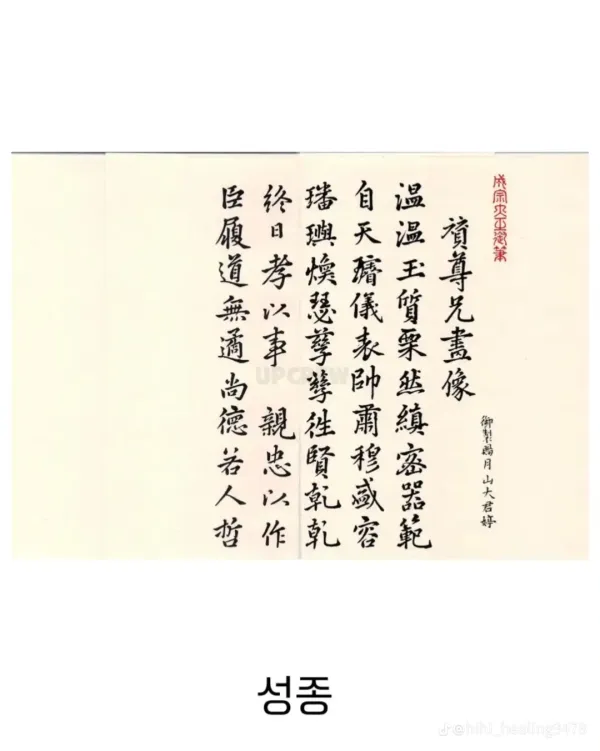 成宗大王御筆
賛尊兄畫像
御製賜月山大君婷
溫溫玉質栗然縝密器範
自天璿儀表帥肅穆盛容
璠璵煥瑟孳孳徃賢乾乾
終日孝以事 親忠以作
臣履道無遹尚德若人哲
UPCREW
성종
@hihi_healing3478